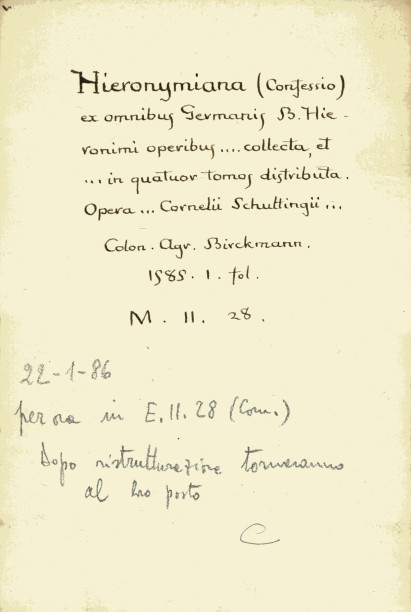 Hieronymiana (Confessio)
ex omnibus Germanis B. Hie-
ronimi operibus .... collecta, et
... in quatuor tomos distributa.
Opera ... Cornelii Schultingii ...
Colon. Agr. Birckmann.
1585. 1. fol.
M. II. 28.
22-1-86
per ora in E. II. 28 (Com.)
Dopo ristrutturazione torneranno
al loro posto
C